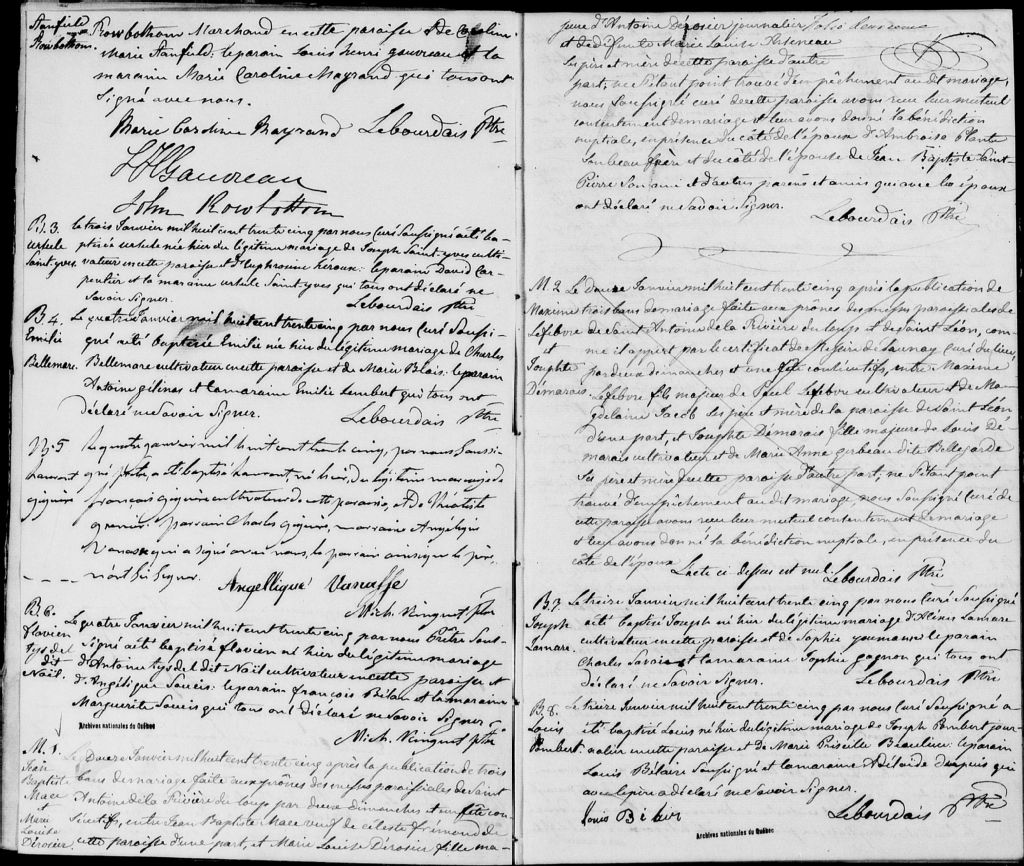 Stanfield
Rowbothom.
Rowbothom Marchand en cette paroisse & de Caroline
Marie Stanfield: le parain Louis henri gauvreau et la
maraine Marie Caroline Mayrand qui tous ont
Signé avec nous.
Marie Caroline Mayrand Lebourdais Ptre
L H Gauvreau
John Rowbottom
B. 3.
ursule
Saint-yves
Le trois Janvier mil huit cent trente cinq par nous Curé Soussigné a été ba-
ptisée ursule née hier du légitime mariage de Joseph Saint-yves culti-
vateur en cette paroisse et d'Euphrosine héroux: le parain David Car-
pentier et la maraine ursule Saint-yves qui tous ont déclaré ne
Savoir Signer.
Lebourdais Ptre
B. 4.
Emilie
Bellemare.
Le quatre Janvier mil huit cent trente cinq par nous Curé Soussi-
gné a été baptisée Emilie née hier du légitime mariage de Charles
Bellemare cultivateur en cette paroisse et de Marie Blais: le parain
Antoine gélinas et la maraine Emilie Lambert qui tous ont
déclaré ne Savoir Signer.
Lebourdais Ptre
B. 5
gignère
Le quatre janvier mil huit cent trente cinq, par nous Soussi-
gné Prêtre, a été baptisé né hier, du légitime mariage de
françois gignère cultivateur de cette paroisse, & de
parrain Charles gignère, marraine Angélique
Vanasse qui a signé avec nous, le parrain ainsi que le père
n'ont su signer.
Angellique Vanasse
Mich. Ringuet Ptr
B. 6.
flavien
dit
Noël.
Le quatre Janvier mil huit cent trente cinq par nous Prêtre Sous-
signé a été baptisé flavien né hier du légitime mariage
d'Antoine dit Noël cultivateur en cette paroisse et
d'Angélique Saucis: le parain françois Béland et la maraine
Marguerite Saucis qui tous ont déclaré ne Savoir Signer.
Mich. Ringuet Ptre
Archives nationales du Québec
M. 1.
Jean
Baptist.
Mace
et
Marie
Louise
Dérosier,
Le Douze Janvier mil huit cent trente cinq après la publication de trois
bans de mariage faite aux prônes des messes paroissiales de Saint
Antoine de la Rivière du loup par deux Dimanches et un fête con-
sécutifs, entre Jean Baptiste Mace veuf de céleste frimond de
cette paroisse d'une part, et Marie Louise Dérosier fille ma-
jeure d'Antoine Dérosier journalier
et de défunte Marie Louise Arseneau
Ses père et mère de cette paroisse d'autre
part; ne S'étant point trouvé d'empêchement au dit mariage,
nous Soussigné curé de cette paroisse avons reçu leur mutuel
consentement de mariage et leur avons donné la bénédiction
nuptiale, en présence du côté de l'époux d'Ambroise Plante
Son beau frère et du côté de l'épouse de Jean Baptiste Saint-
Pierre Son ami et d'autres parens et amis qui avec les époux
ont déclaré ne Savoir Signer.
Lebourdais Ptre
M. 2.
Maxime
Lefebvre
et
Josephte
Démarais
Le Douze Janvier mil huit cent trente cinq après la publication de
trois bans de mariage faite aux prônes des messes paroissiales de
de Saint Antoine de la Rivière du loup et de Saint Léon, com-
me il appert par le certificat de Messire de Launay Curé du lieu,
par deux dimanches et une fête consécutifs, entre Maxime
Lefebvre fils majeur de Paul Lefebvre cultivateur et de Ma-
gdelaine Jacob Ses père et mère de la paroisse de Saint Léon
d'une part, et Josephte Démarais fille majeure de Louis Dé-
marais cultivateur et de Marie Anne gerbeau dite Bellegarde
Ses père et mère de cette paroisse d'autre part; ne S'étant point
trouvé d'empêchement au dit mariage, nous Soussigné Curé de
cette paroisse avons reçu leur mutuel consentement de mariage
et leur avons donné la bénédiction nuptiale, en présence du
côté de l'époux
L'acte ci dessus est nul. Lebourdais Ptre
B. 7.
Joseph
Lamare.
Le treize Janvier mil huit cent trente cinq par nous Curé Soussigné
a été baptisé Joseph né hier du légitime mariage d'Alexis Lamare
cultivateur en cette paroisse et de Sophie le parain
Charles Savoie et la maraine Sophie gagnon qui tous ont
déclaré ne Savoir Signer.
Lebourdais Ptre
B. 8.
Louis
Pombert
Le treize Janvier mil huit cent trente cinq par nous Curé Soussigné a
été baptisé Louis né hier du légitime mariage de Joseph Pombert jour-
nalier en cette paroisse et de Marie Priscille Beaulieu: le parain
Louis Bélaire Soussigné et la maraine Adélaïde Dupuis qui
avec le père a déclaré ne Savoir Signer.
Lebourdais Ptre
Archives nationales du Québec